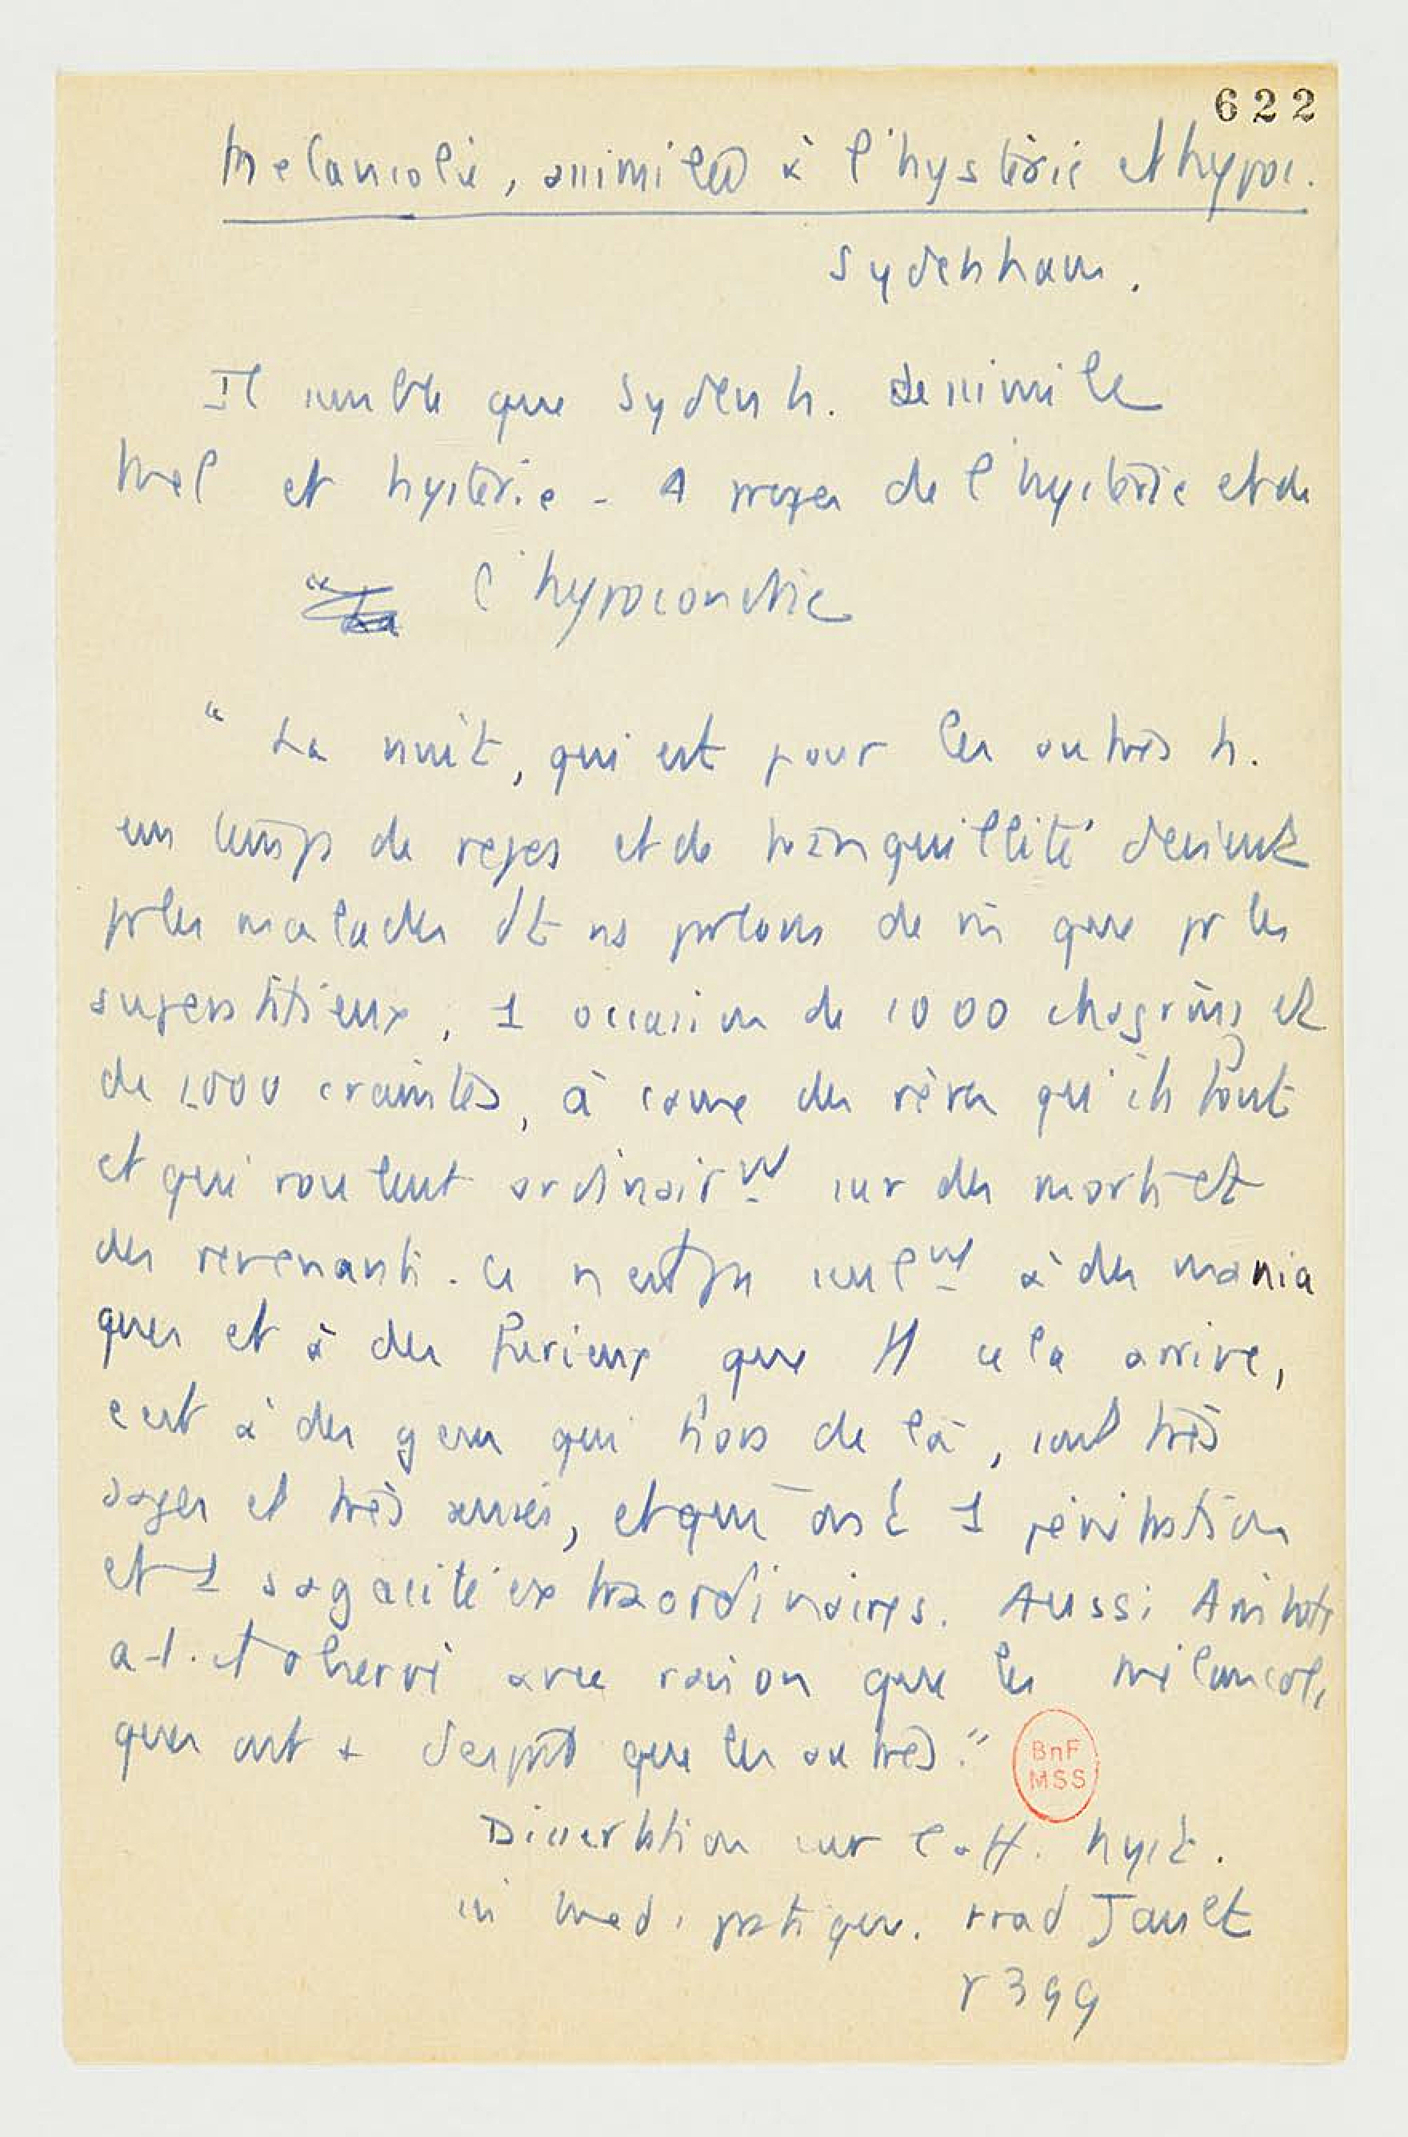 622
Melancolie, assimilée à l'hystérie et hypoc.
Sydenham.
Il semble que Sydenh. assimile
Mel et hystérie - A propos de l'hystérie et de
l'hypocondrie
" La nuit, qui est pour les autres h.
un temps de repos et de tranquillité devient
pr les malades dt ns parlons de m que pr les
superstitieux, 1 occasion de 1000 chagrins et
de 1000 craintes, à cause des rêves qu'ils font
et qui roulent ordinairt sur des morts et
des revenants. Ce n'est pas seulmt à des mania
ques et à des furieux que tt cela arrive,
c'est à des gens qui hors de là, sont très
sages et très sensés, et qui ont 1 pénétration
et 1 sagacité extraordinaires. Aussi Aristote
a-t-il observé avec raison que les mélancoli
ques ont + d'esprit que les autres."
BnF
MSS
Dissertation sur l'aff. hyst.
in Med. pratique. trad Jault
p 399